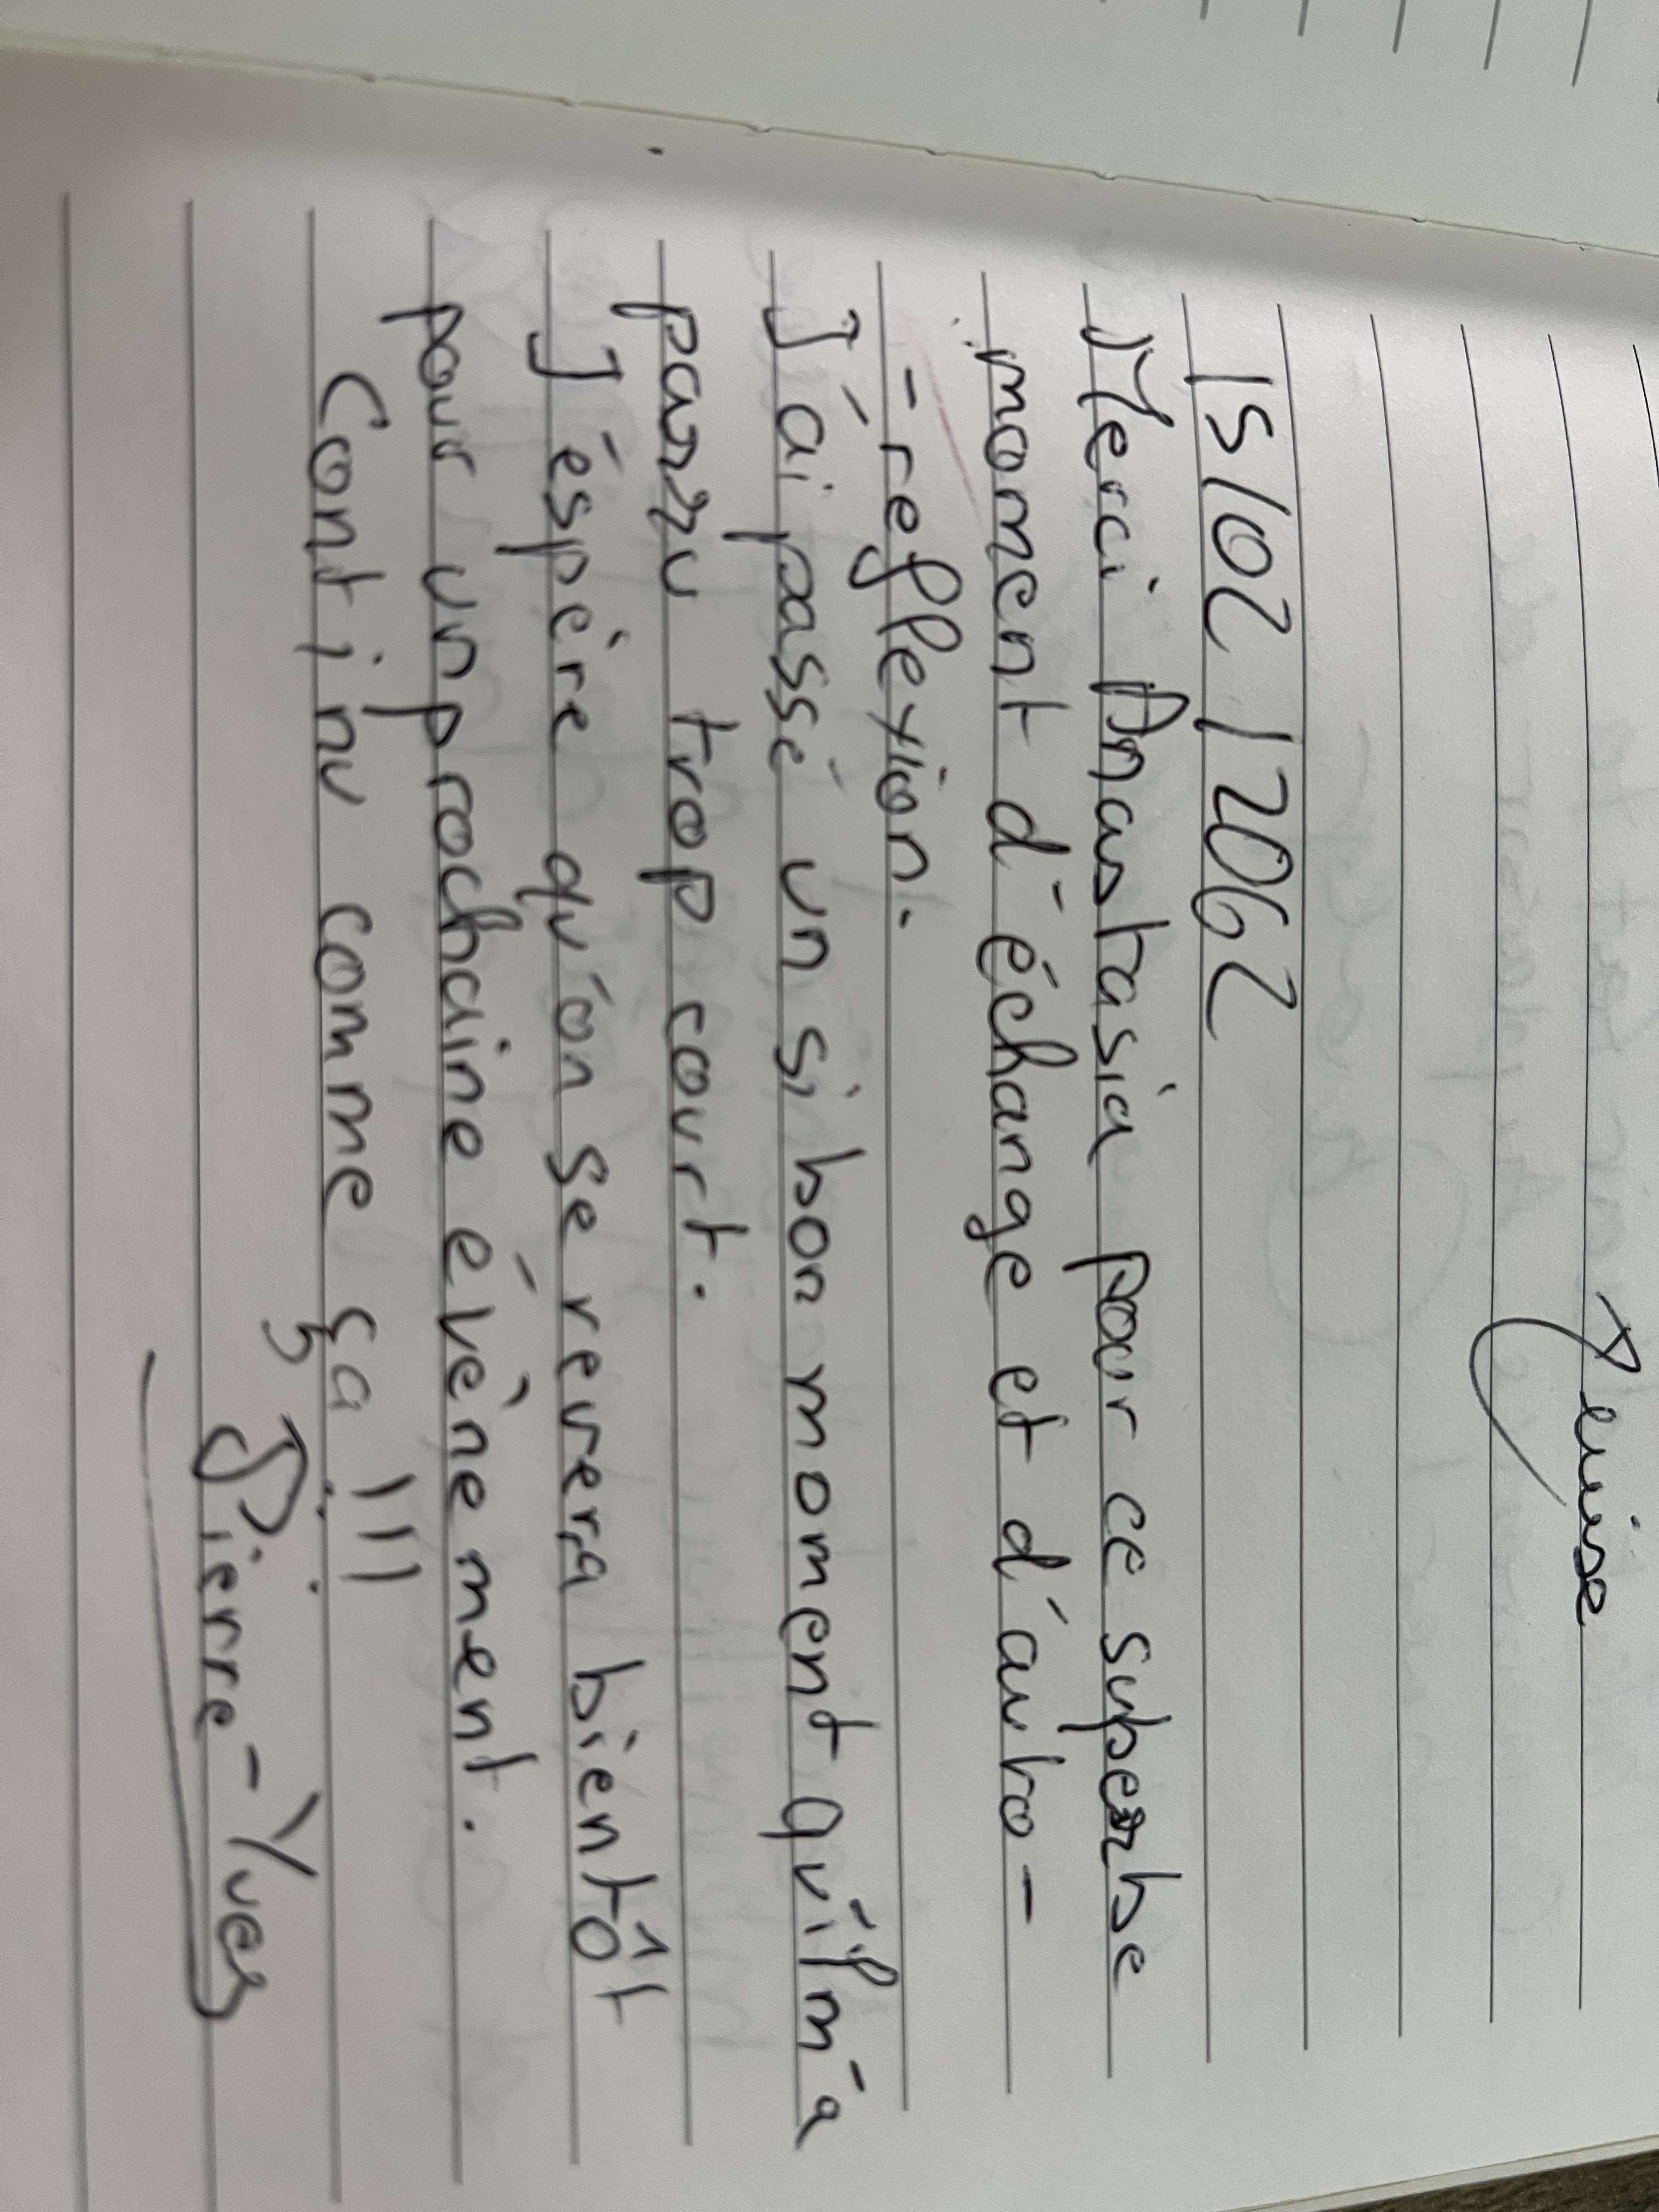 15/02/2062
Merci Anastasia pour ce superbe
moment d'échange et d'auto-
-reflexion.
J'ai passé un si bon moment qu'il m'a
paru trop court.
J'éspère qu'on se revera bientôt
pour un prochaine évènement.
Continu comme ça !!!
Pierre-Yves